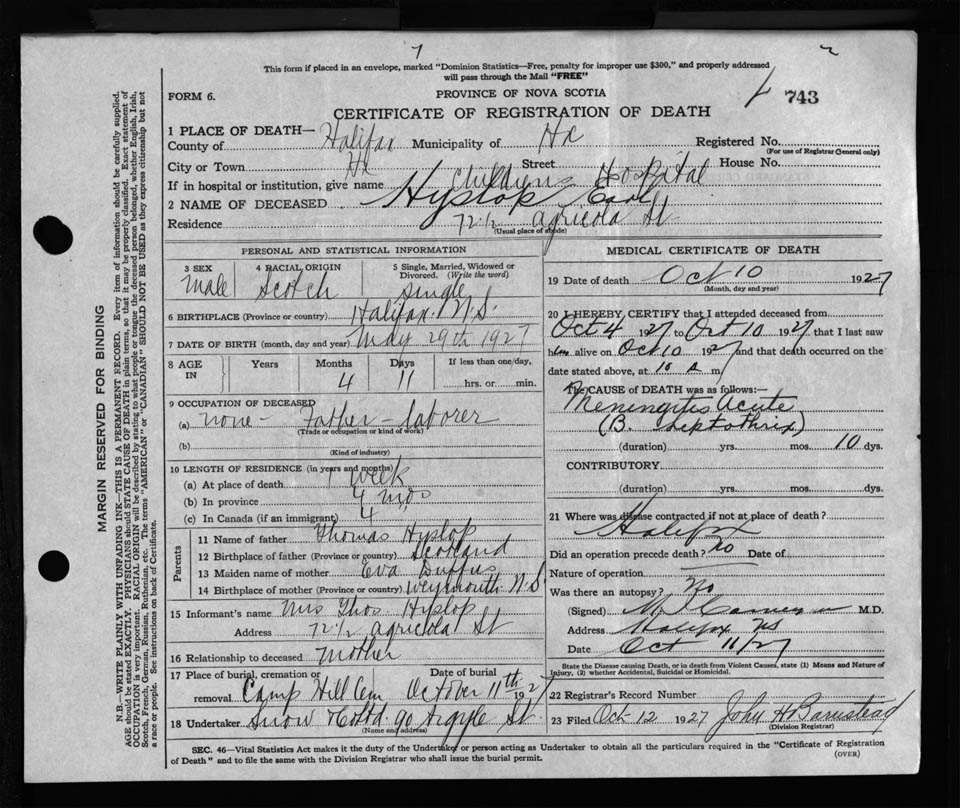 7
2
This form if placed in an envelope, marked "Dominion Statistics—Free, penalty for improper use $300," and properly addressed
will pass through the Mail "FREE"
FORM 6.
PROVINCE OF NOVA SCOTIA
743
CERTIFICATE OF REGISTRATION OF DEATH
1 PLACE OF DEATH—
County of Halifax Municipality of Hx Registered No.
(For use of Registrar General only)
City or Town Hx Street House No.
If in hospital or institution, give name Childrens Hospital
2 NAME OF DECEASED Hyslop, Earl
Residence 72½ Agricola St
(Usual place of abode)
PERSONAL AND STATISTICAL INFORMATION
3 SEX Male
4 RACIAL ORIGIN Scotch
5 Single, Married, Widowed or Divorced. (Write the word) Single
6 BIRTHPLACE (Province or country) Halifax N.S.
7 DATE OF BIRTH (month, day and year) May 29th 1927
8 AGE IN Years Months 4 Days 11 If less than one/day, hrs. or min.
9 OCCUPATION OF DECEASED
(a) none - Father - laborer
(Trade or occupation or kind of work)
(b)
(Kind of industry)
10 LENGTH OF RESIDENCE (in years and months)
(a) At place of death 1 week
(b) In province 4 mos
(c) In Canada (if an immigrant) 4
Parents
11 Name of father Thomas Hyslop
12 Birthplace of father (Province or country) Scotland
13 Maiden name of mother Eva Duffus
14 Birthplace of mother (Province or country) Weymouth N.S
15 Informant's name Mrs Thos. Hyslop
Address 72½ Agricola St
16 Relationship to deceased Mother
17 Place of burial, cremation or removal Camp Hill Cem Date of burial October 11th 1927
18 Undertaker Snow & Co Ltd 90 Argyle St.
(Name and address)
MEDICAL CERTIFICATE OF DEATH
19 Date of death Oct 10 1927
(Month, day and year)
20 I HEREBY, CERTIFY that I attended deceased from
Oct 4 1927 to Oct 10 1927 that I last saw
him alive on Oct 10 1927 and that death occurred on the
date stated above, at 10 A m
The CAUSE OF DEATH was as follows:—
Meningitis Acute
(B. Leptothrix)
(duration) yrs. mos. 10 dys.
CONTRIBUTORY
(duration) yrs. mos. dys.
21 Where was disease contracted if not at place of death?
Halifax
Did an operation precede death? no Date of
Nature of operation
Was there an autopsy? No
(Signed) M.D.
Address Halifax NS
Date Oct 11/27
State the Disease causing Death, or in death from Violent Causes, state (1) Means and Nature of
Injury, (2) whether Accidental, Suicidal or Homicidal.
22 Registrar's Record Number
23 Filed Oct 12 1927 John H Barnstead
(Division Registrar)
SEC. 46—Vital Statistics Act makes it the duty of the Undertaker or person acting as Undertaker to obtain all the particulars required in the "Certificate of Registration
of Death" and to file the same with the Division Registrar who shall issue the burial permit.
(OVER)
MARGIN RESERVED FOR BINDING
N.B.—WRITE PLAINLY, WITH UNFADING INK—THIS IS A PERMANENT RECORD. Every item of information should be carefully supplied.
AGE should be stated EXACTLY. PHYSICIANS should STATE CAUSE OF DEATH in plain terms, so that it may be properly classified. Exact statement of
OCCUPATION is very important. RACIAL ORIGIN will be described by stating to what people or tongue the deceased person belonged, whether English, Irish,
Scotch, French, German, Russian, Ruthenian, etc. The terms "AMERICAN" or "CANADIAN" SHOULD NOT BE USED as they express citizenship but not
a race or people. See instructions on back of Certificate.